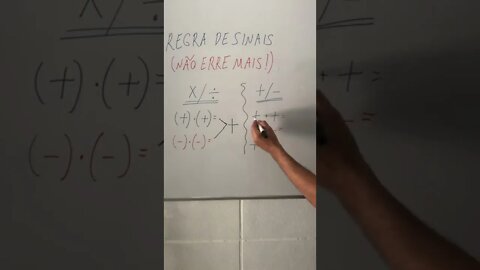 REGRA DE SINAIS
(NÃO ERRE MAIS!)
X/÷ +/-
(+)·(+)= +
(-)·(-)=